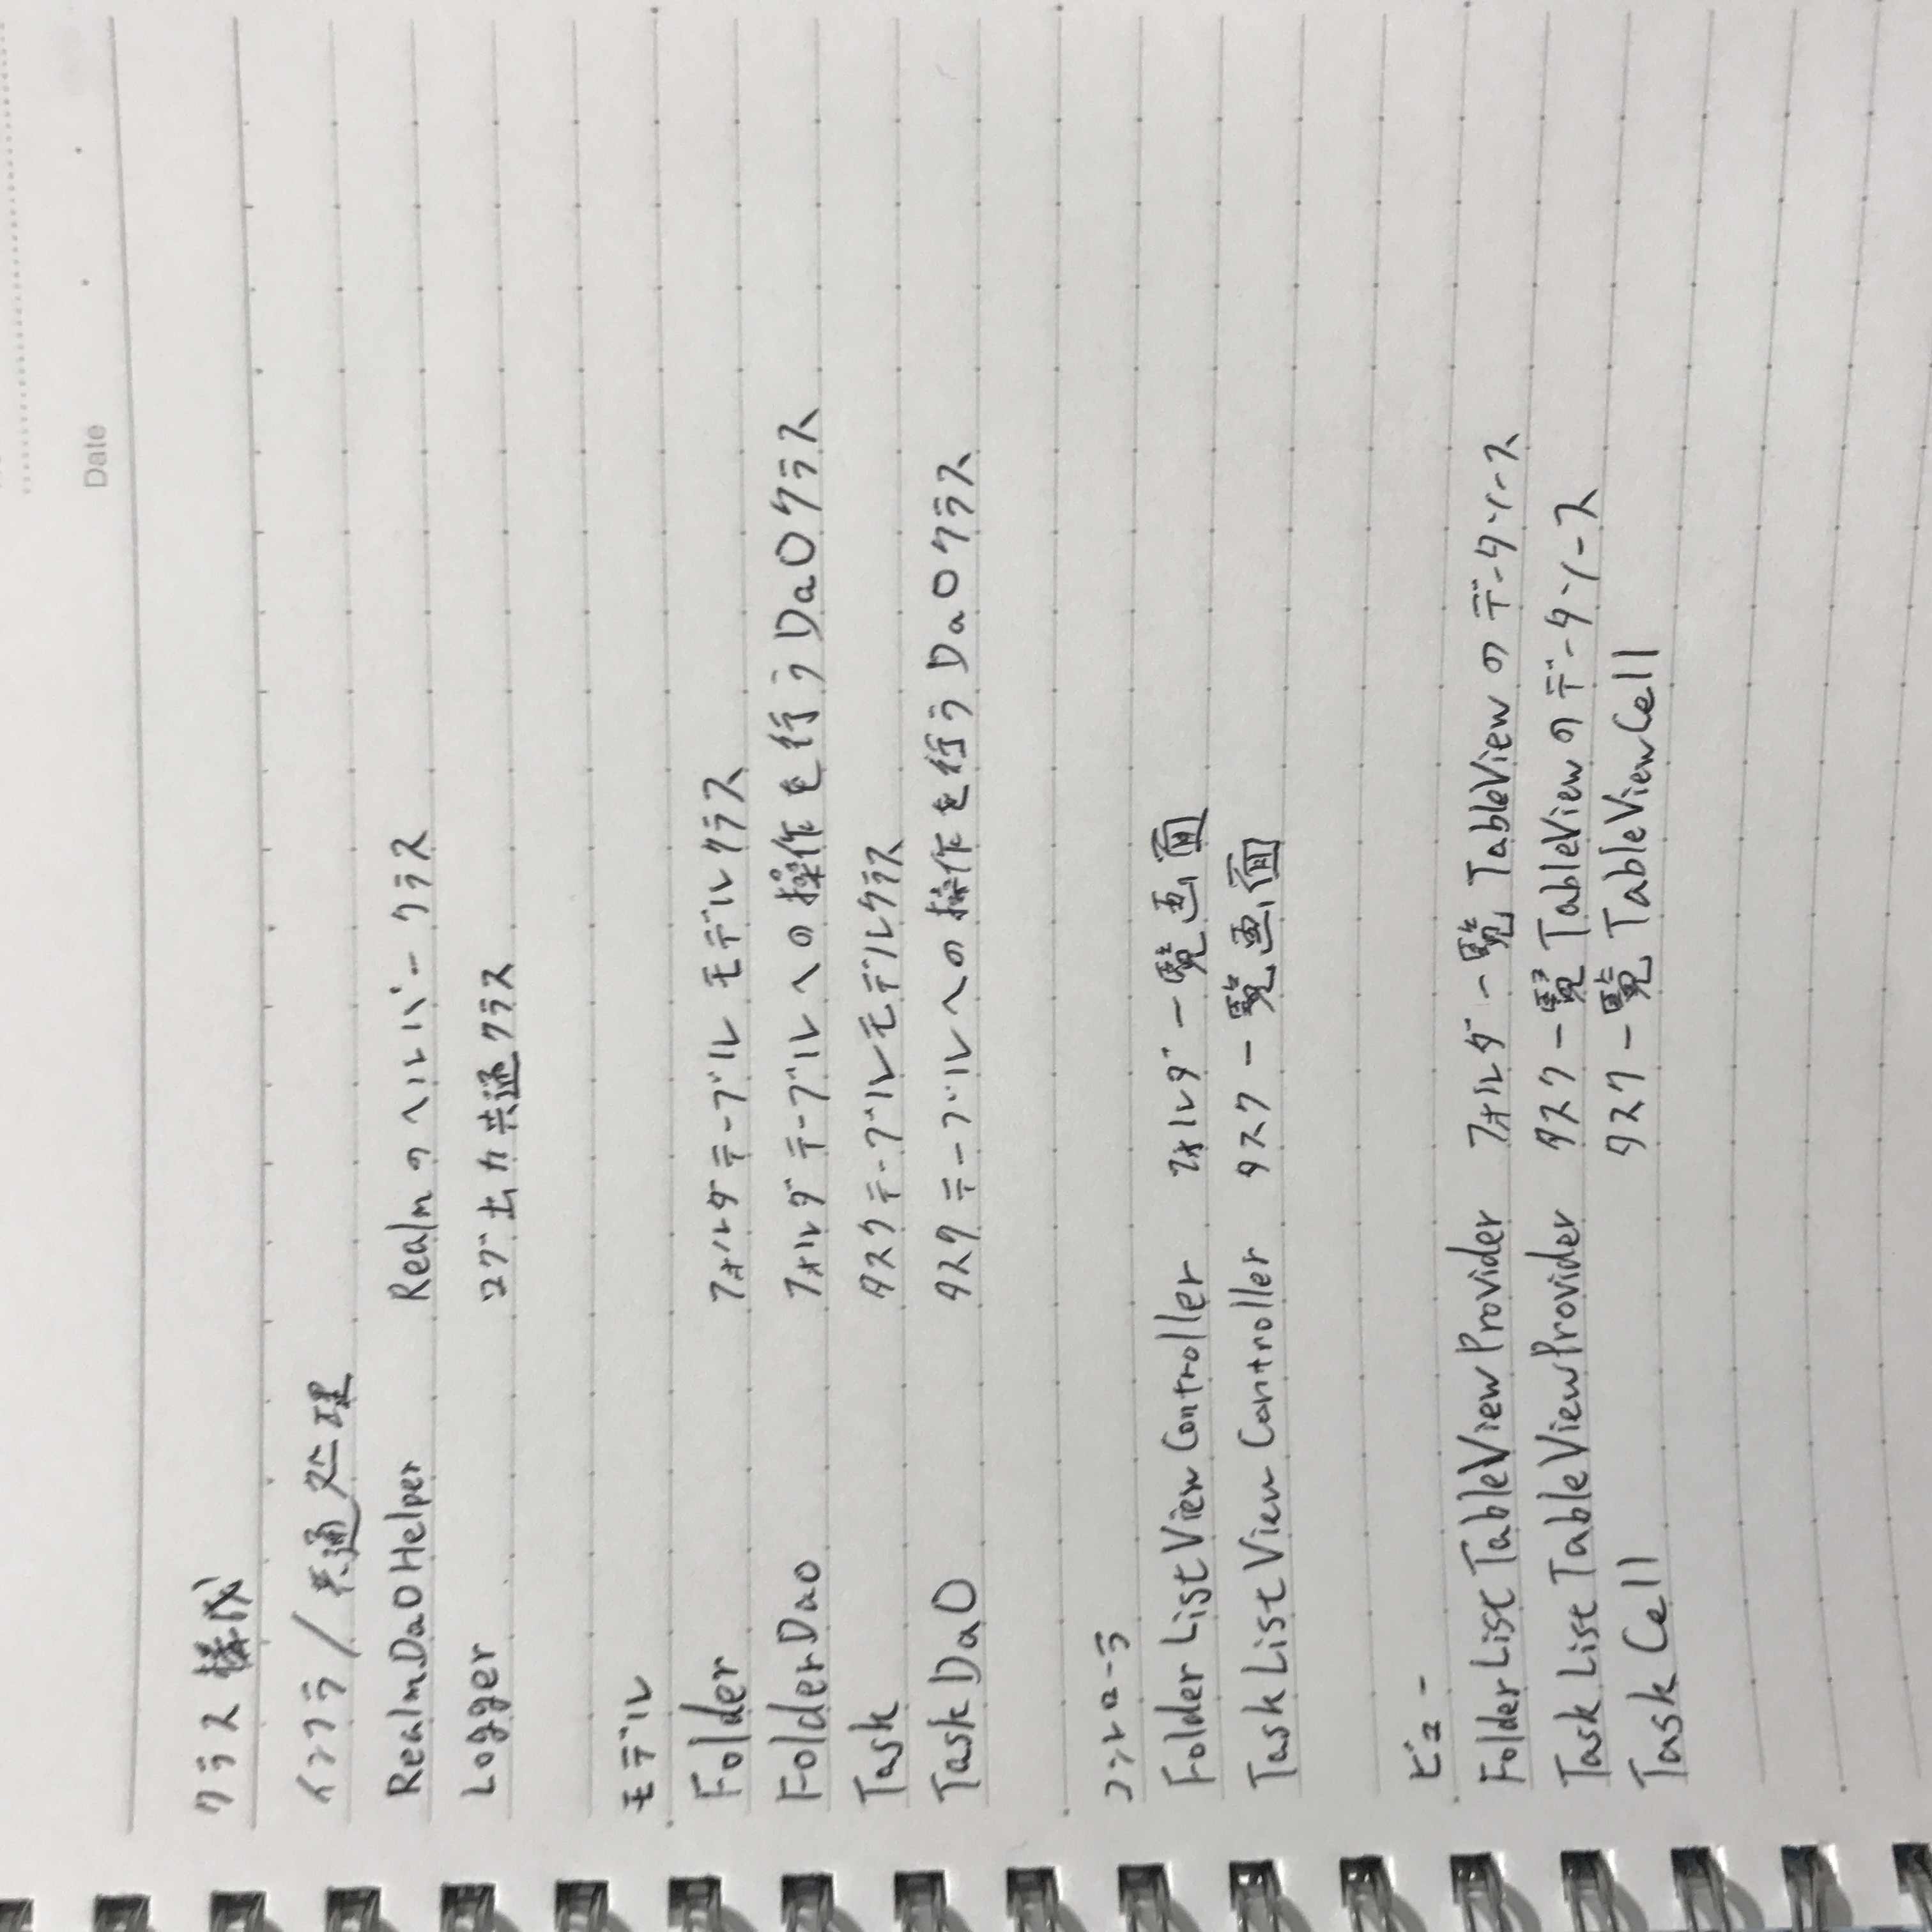 Date
クラス構成
インフラ/共通処理
RealmDaOHelper Realmのヘルパークラス
Logger ログ出力共通クラス
モデル
Folder フォルダテーブルモデルクラス
FolderDao フォルダテーブルへの操作を行うDaOクラス
Task タスクテーブルモデルクラス
TaskDaO タスクテーブルへの操作を行うDaOクラス
コントローラ
FolderListViewController フォルダ一覧画面
TaskListViewController タスク一覧画面
ビュー
FolderListTableViewProvider フォルダ一覧TableViewのデータソース
TaskListTableViewProvider タスク一覧TableViewのデータソース
TaskCell タスク一覧TableViewCell